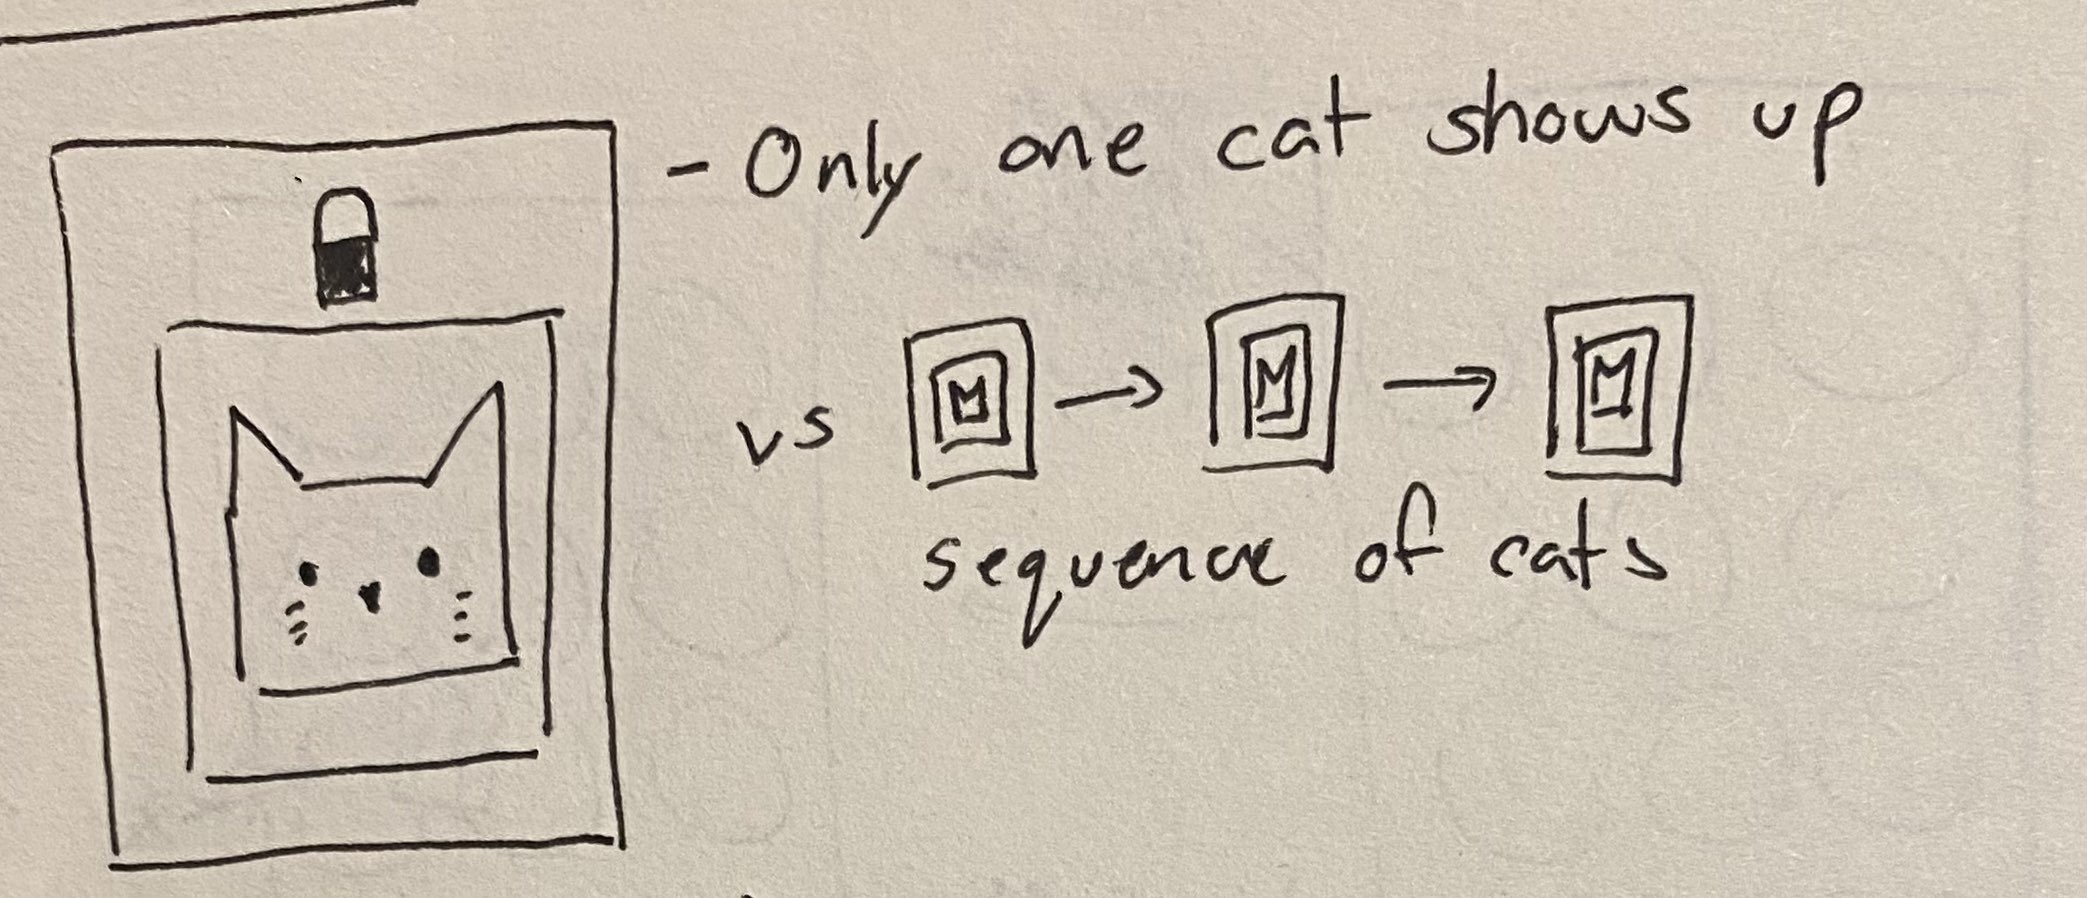 - Only one cat shows up
vs
sequence of cats